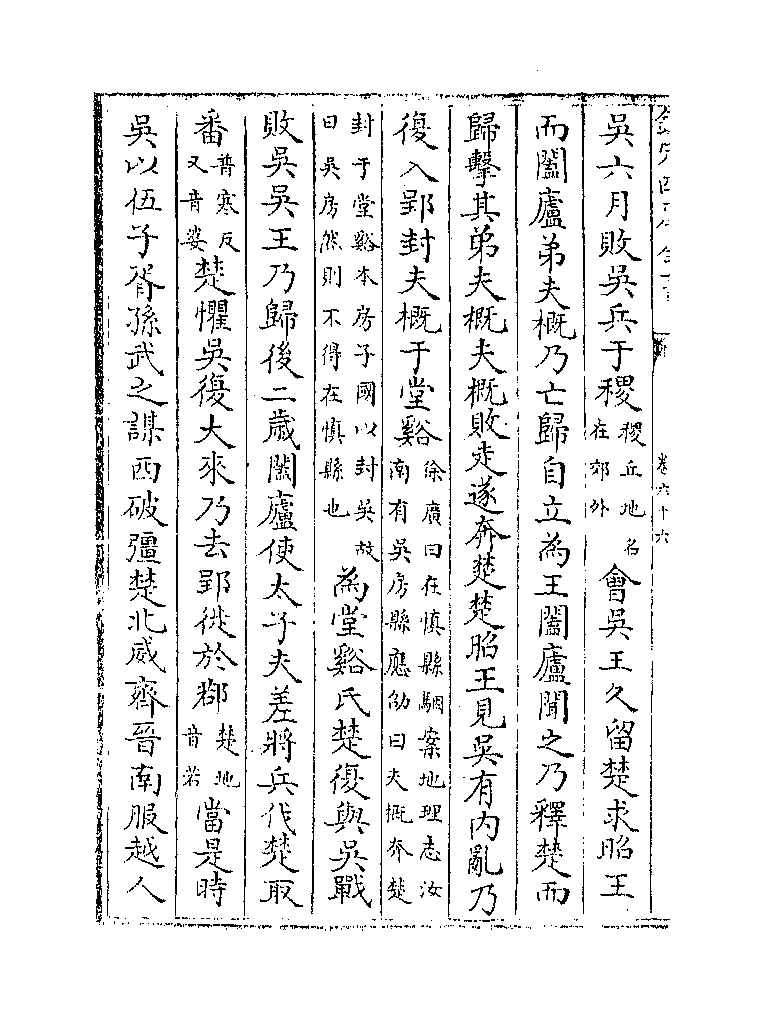 欽定四庫全書 卷六十六
吳六月敗吳兵于稷稷丘地名在郊外會吳王久留楚求昭王
而闔廬弟夫概乃亡歸自立為王闔廬聞之乃釋楚而
歸擊其弟夫概夫概敗走遂奔楚楚昭王見吳有内亂乃
復入郢封夫概于堂谿徐廣曰在慎縣駰案地理志汝南有吳房縣應劭曰夫概奔楚
封于堂谿本房子國以封吳故曰吳房然則不得在慎縣也為堂谿氏楚復與吳戰
敗吳吳王乃歸後二歲闔廬使太子夫差將兵伐楚取
番普寒反又音婆楚懼吳復大來乃去郢徙於鄀楚地音若當是時
吳以伍子胥孫武之謀西破彊楚北威齊晉南服越人